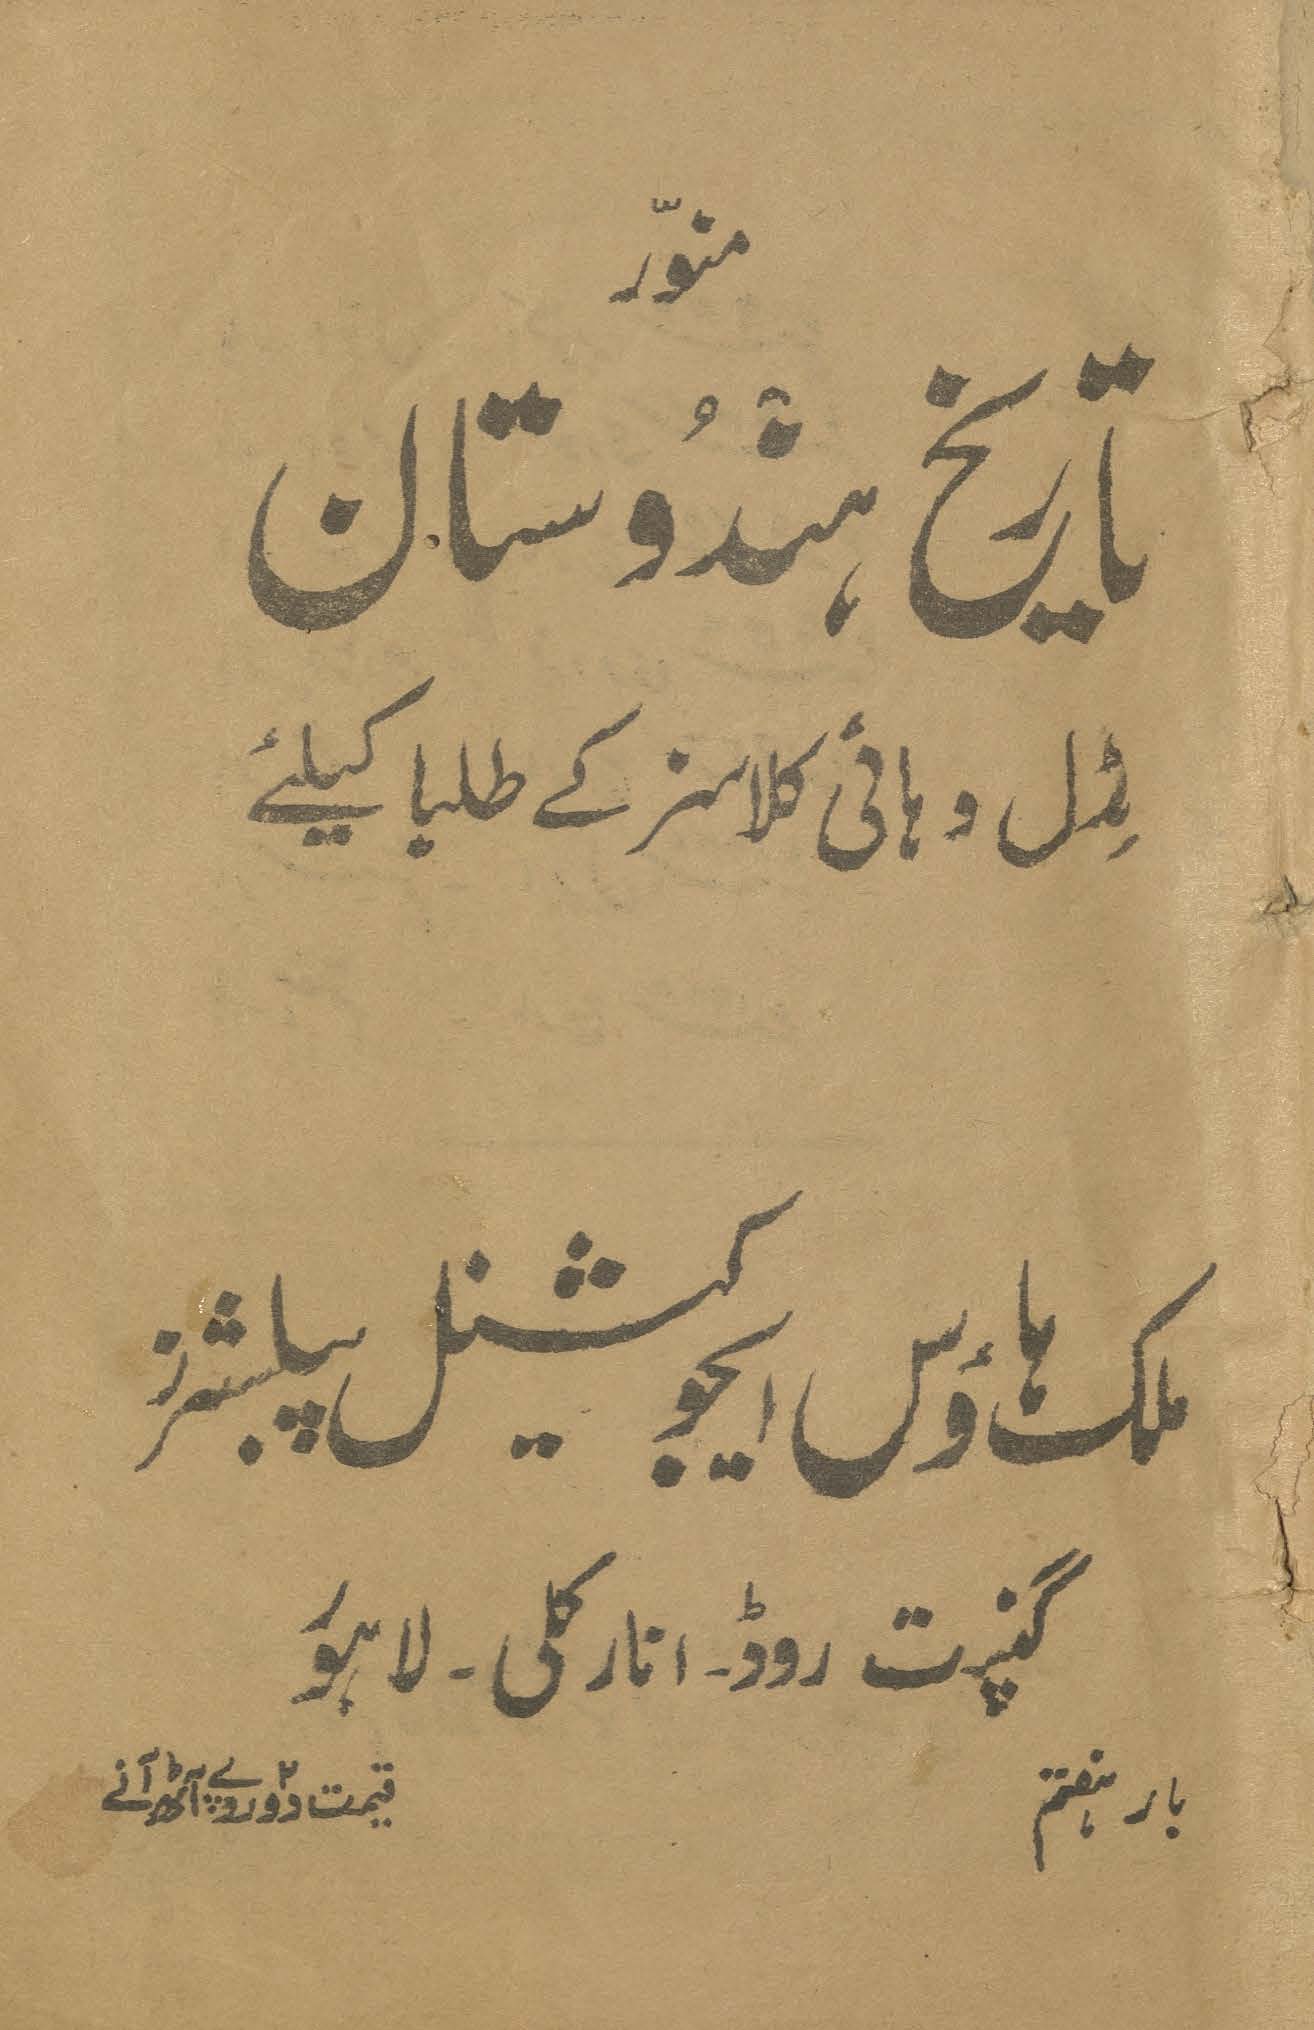 منوّر
تاریخ ہندُوستان
مِڈل و ہائی کلاسنر کے طلبا کیلئے
ملک ہاؤس ایجوکیشنل پبلشرز
گنپت روڈ - انارکلی - لاہور
بار ہفتم
قیمت دو۲ روپے آٹھ آنے